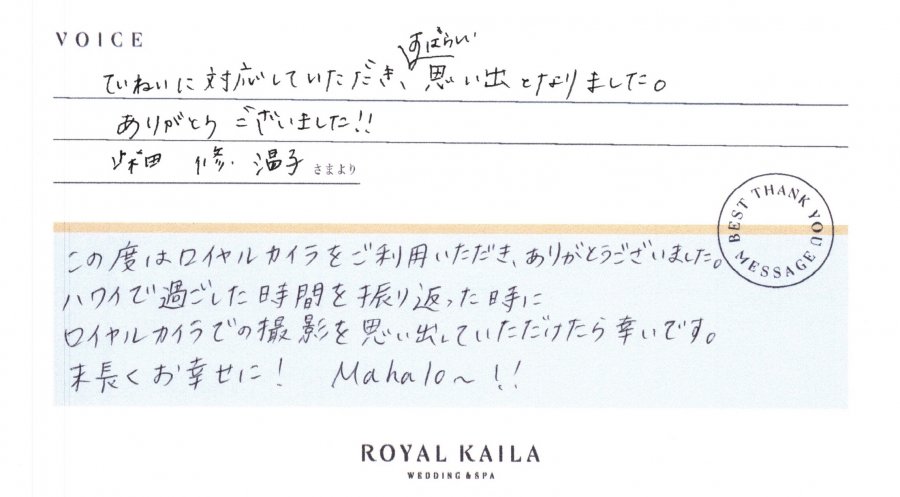 VOICE
すばらしい
ていねいに対応していただき、思い出となりました。
ありがとう ございました!!
柴田 修・温子 さまより
BEST THANK YOU MESSAGE
この度はロイヤルカイラをご利用いただき、ありがとうございました。
ハワイで過ごした時間を振り返った時に
ロイヤルカイラでの撮影を思い出していただけたら幸いです。
末長くお幸せに! Mahalo〜!!
ROYAL KAILA
WEDDING & SPA